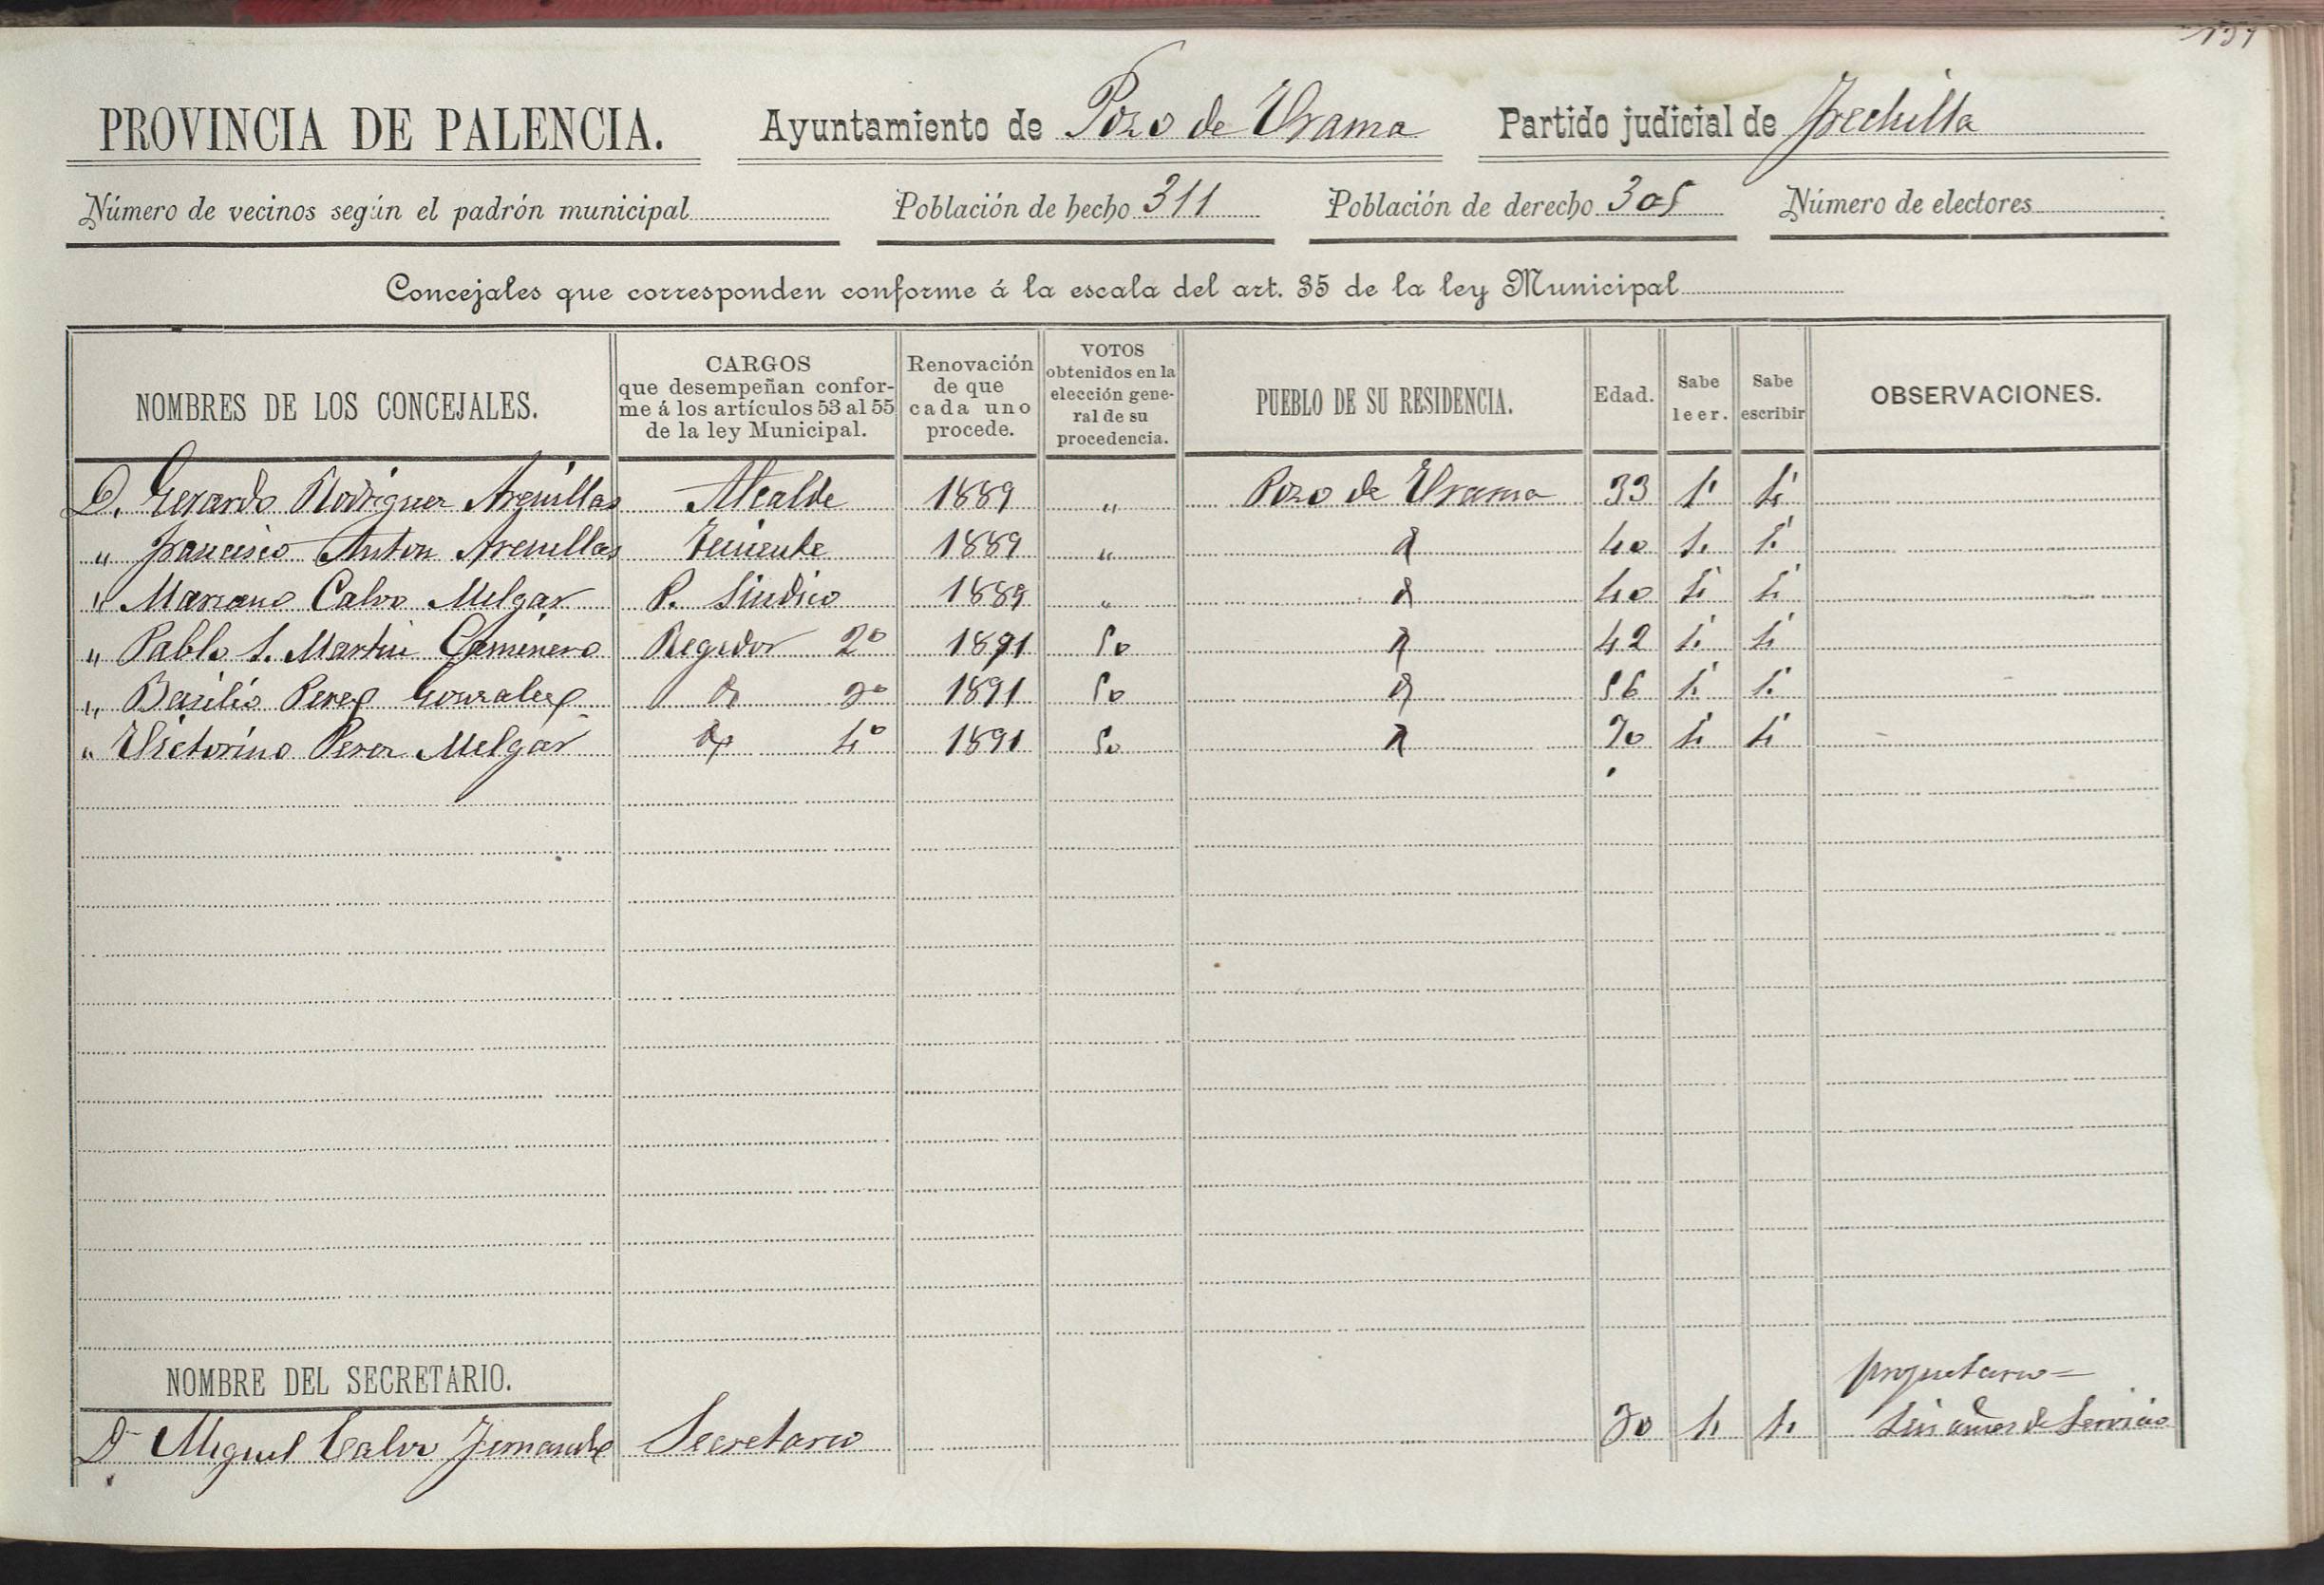 137
PROVINCIA DE PALENCIA. Ayuntamiento de Pozo de Urama Partido judicial de Frechilla
Número de vecinos según el padrón municipal Población de hecho 311 Población de derecho 305 Número de electores
Concejales que corresponden conforme á la escala del art. 35 de la ley Municipal
NOMBRES DE LOS CONCEJALES. CARGOS que desempeñan conforme á los artículos 53 al 55 de la ley Municipal. Renovación de que cada uno procede. VOTOS obtenidos en la elección general de su procedencia. PUEBLO DE SU RESIDENCIA. Edad. Sabe leer. Sabe escribir OBSERVACIONES.
D. Gerardo Rodriguez Arenillas Alcalde 1889 " Pozo de Urama 33 si si
" Francisco Anton Arenillas Teniente 1889 " 40 si si
" Mariano Calvo Melgar P. Sindico 1889 " 40 si si
" Pablo S. Martin Caminero Regidor 2º 1891 50 42 si si
" Basilio Perez Gonzalez 1891 50 56 si si
" Victorino Perez Melgar 4º 1891 50 si si
NOMBRE DEL SECRETARIO.
propietario=
D. Miguel Calvo Fernandez Secretario 30 si si años de servicio